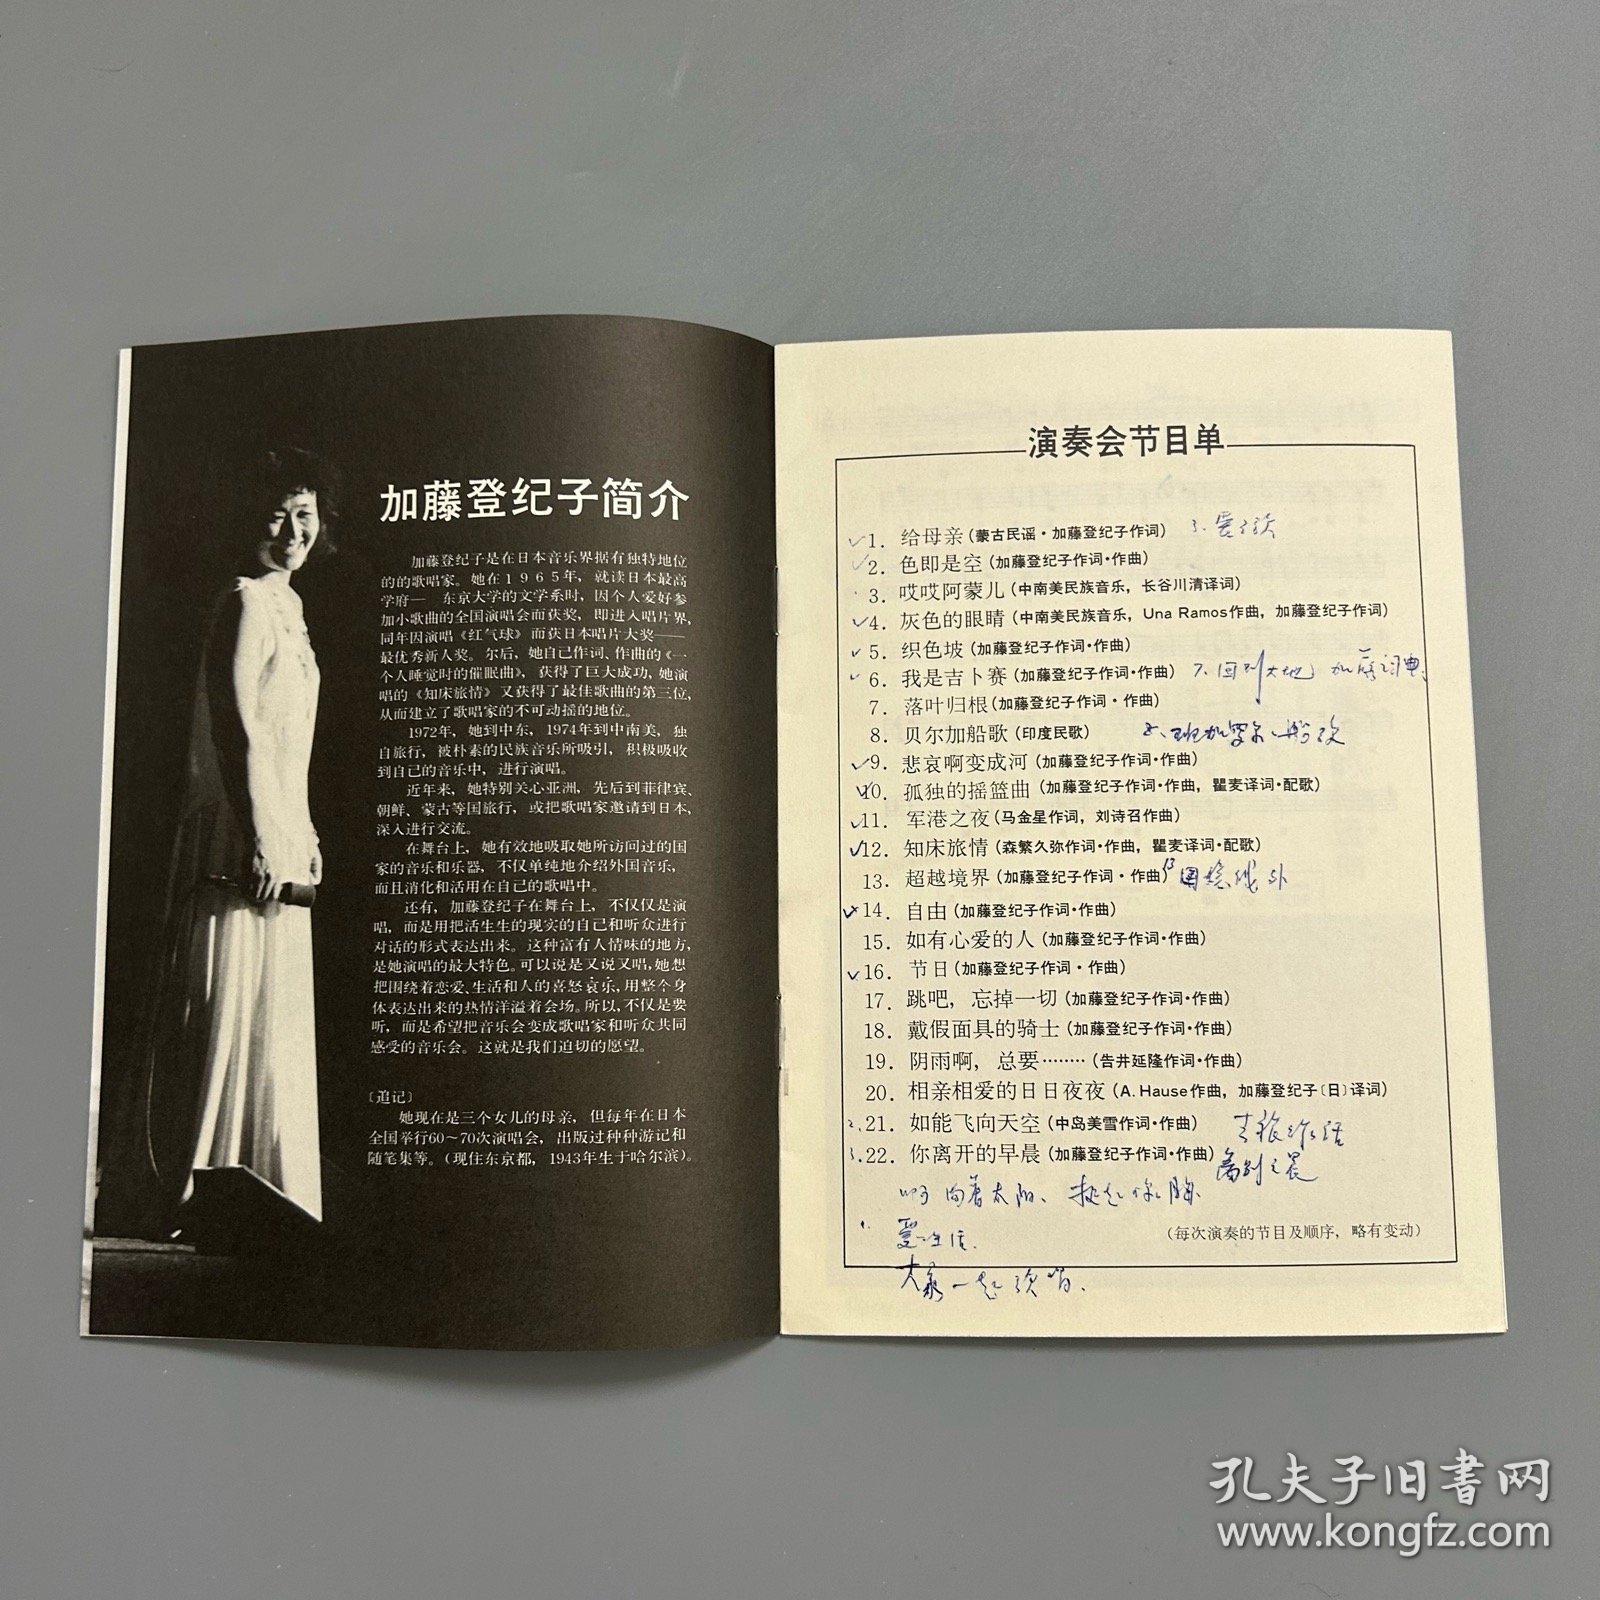 加藤登纪子简介
加藤登纪子是在日本音乐界据有独特地位
的的歌唱家。她在1965年，就读日本最高
学府— 东京大学的文学系时，因个人爱好参
加小歌曲的全国演唱会而获奖，即进入唱片界，
同年因演唱《红气球》而获日本唱片大奖——
最优秀新人奖。尔后，她自己作词、作曲的《一
个人睡觉时的催眠曲》，获得了巨大成功，她演
唱的《知床旅情》又获得了最佳歌曲的第三位，
从而建立了歌唱家的不可动摇的地位。
1972年，她到中东，1974年到中南美，独
自旅行，被朴素的民族音乐所吸引，积极吸收
到自己的音乐中，进行演唱。
近年来，她特别关心亚洲，先后到菲律宾、
朝鲜、蒙古等国旅行，或把歌唱家邀请到日本，
深入进行交流。
在舞台上，她有效地吸取她所访问过的国
家的音乐和乐器，不仅单纯地介绍外国音乐，
而且消化和活用在自己的歌唱中。
还有，加藤登纪子在舞台上，不仅仅是演
唱，而是用把活生生的现实的自己和听众进行
对话的形式表达出来。这种富有人情味的地方，
是她演唱的最大特色。可以说是又说又唱，她想
把围绕着恋爱、生活和人的喜怒哀乐，用整个身
体表达出来的热情洋溢着会场。所以，不仅是要
听，而是希望把音乐会变成歌唱家和听众共同
感受的音乐会。这就是我们迫切的愿望。
〔追记〕
她现在是三个女儿的母亲，但每年在日本
全国举行60～70次演唱会，出版过种种游记和
随笔集等。（现住东京都，1943年生于哈尔滨）。
演奏会节目单
1. 给母亲（蒙古民谣·加藤登纪子作词）
2. 色即是空（加藤登纪子作词·作曲）
3. 哎哎阿蒙儿（中南美民族音乐，长谷川清译词）
4. 灰色的眼睛（中南美民族音乐，Una Ramos作曲，加藤登纪子作词）
5. 织色坡（加藤登纪子作词·作曲）
6. 我是吉卜赛（加藤登纪子作词·作曲） 7. 回到大地 加藤词曲
7. 落叶归根（加藤登纪子作词·作曲）
8. 贝尔加船歌（印度民歌） 8、班加罗尔船歌
9. 悲哀啊变成河（加藤登纪子作词·作曲）
10. 孤独的摇篮曲（加藤登纪子作词·作曲，瞿麦译词·配歌）
11. 军港之夜（马金星作词，刘诗召作曲）
12. 知床旅情（森繁久弥作词·作曲，瞿麦译词·配歌）
13. 超越境界（加藤登纪子作词·作曲） 13 国境线外
14. 自由（加藤登纪子作词·作曲）
15. 如有心爱的人（加藤登纪子作词·作曲）
16. 节日（加藤登纪子作词·作曲）
17. 跳吧，忘掉一切（加藤登纪子作词·作曲）
18. 戴假面具的骑士（加藤登纪子作词·作曲）
19. 阴雨啊，总要········（告井延隆作词·作曲）
20. 相亲相爱的日日夜夜（A. Hause作曲，加藤登纪子〔日〕译词）
2. 21. 如能飞向天空（中岛美雪作词·作曲）
3. 22. 你离开的早晨（加藤登纪子作词·作曲） 离别之晨
向着太阳、挺起你胸
1. 爱生活
（每次演奏的节目及顺序，略有变动）
大家一起欢唱.
孔夫子旧书网
www.kongfz.com